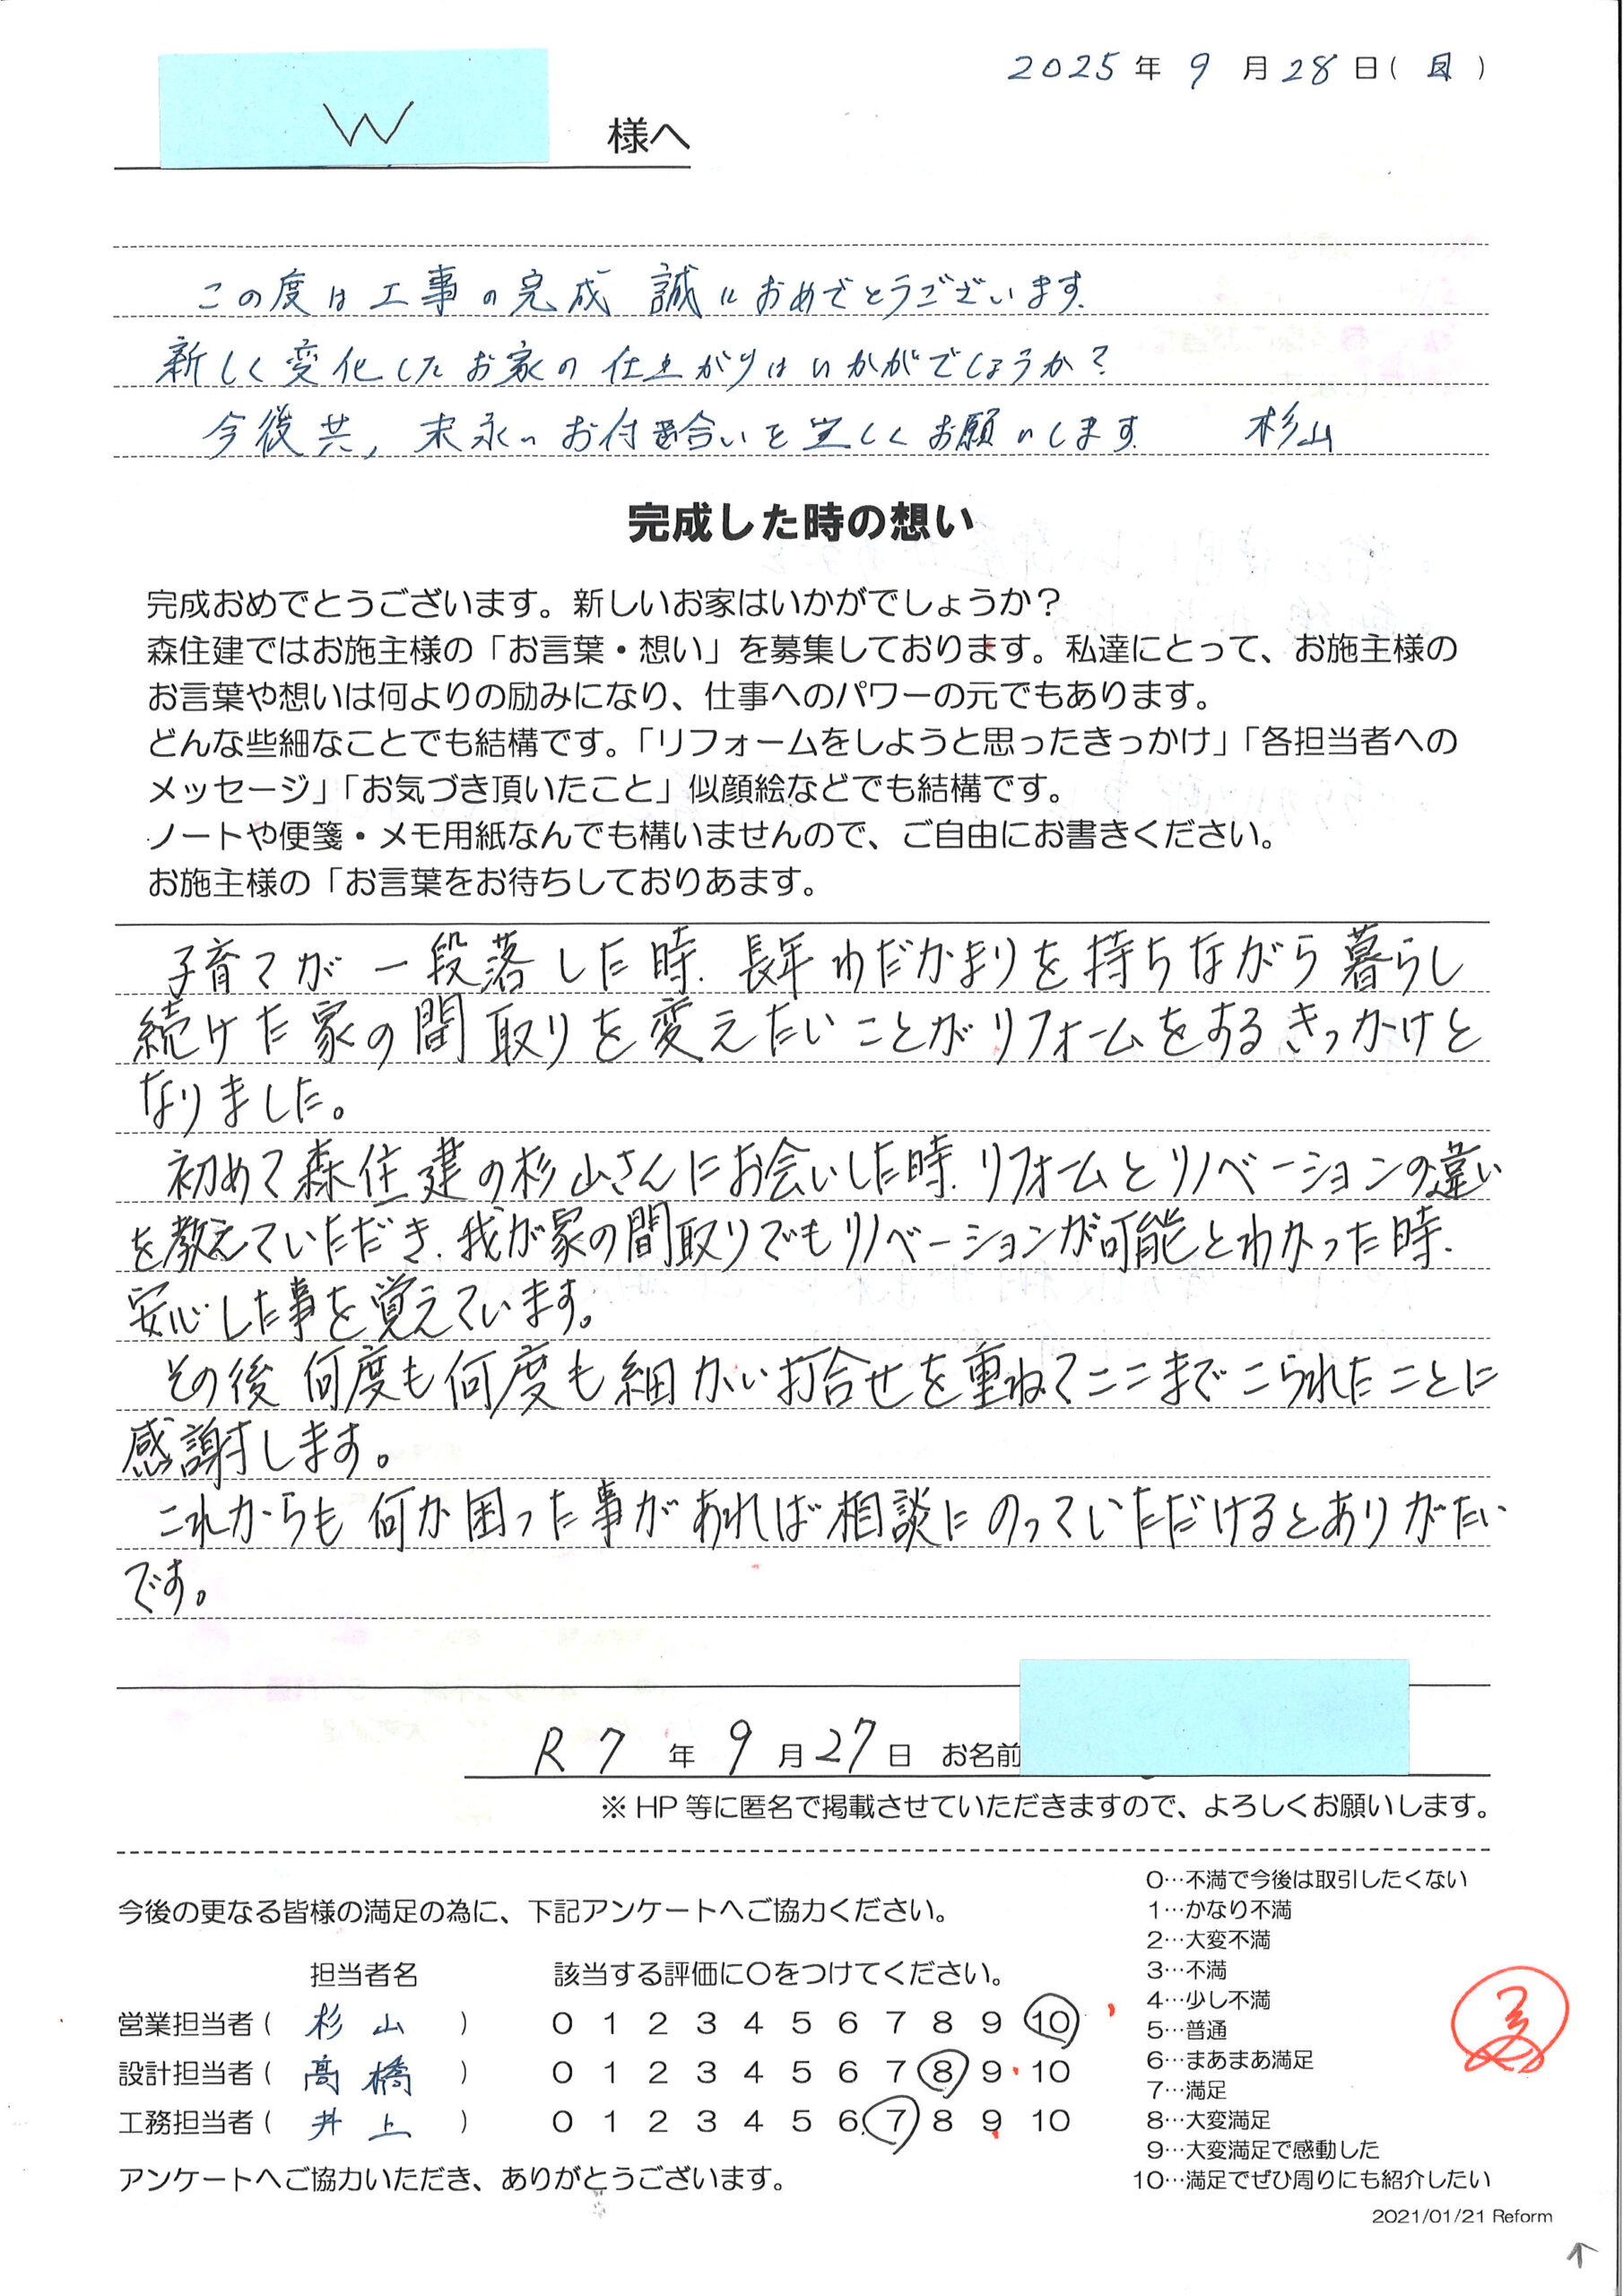 2025年9月28日(日)
W 様へ
この度は工事の完成 誠におめでとうございます.
新しく変化したお家の仕上がりはいかがでしょうか?
今後共, 末永いお付き合いを宜しくお願いします 杉山
完成した時の想い
完成おめでとうございます。新しいお家はいかがでしょうか？
森住建ではお施主様の「お言葉・想い」を募集しております。私達にとって、お施主様の
お言葉や想いは何よりの励みになり、仕事へのパワーの元でもあります。
どんな些細なことでも結構です。「リフォームをしようと思ったきっかけ」「各担当者への
メッセージ」「お気づき頂いたこと」似顔絵などでも結構です。
ノートや便箋・メモ用紙なんでも構いませんので、ご自由にお書きください。
お施主様の「お言葉をお待ちしておりあます。
子育てが一段落した時、長年わだかまりを持ちながら暮らし
続けた家の間取りを変えたいことがリフォームをするきっかけと
なりました。
初めて森住建の杉山さんにお会いした時、リフォームとリノベーションの違い
を教えていただき、我が家の間取りでもリノベーションが可能とわかった時、
安心した事を覚えています。
その後 何度も何度も細かい打合せを重ねてここまでこられたことに
感謝します。
これからも何か困った事があれば相談にのっていただけるとありがたい
です。
R7年9月27日 お名前
※HP等に匿名で掲載させていただきますので、よろしくお願いします。
今後の更なる皆様の満足の為に、下記アンケートへご協力ください。
担当者名 該当する評価に〇をつけてください。
営業担当者( 杉山 ) 0 1 2 3 4 5 6 7 8 9 10
設計担当者( 高橋 ) 0 1 2 3 4 5 6 7 8 9 10
工務担当者( 井上 ) 0 1 2 3 4 5 6 7 8 9 10
アンケートへご協力いただき、ありがとうございます。
0…不満で今後は取引したくない
1…かなり不満
2…大変不満
3…不満
4…少し不満
5…普通
6…まあまあ満足
7…満足
8…大変満足
9…大変満足で感動した
10…満足でぜひ周りにも紹介したい
2021/01/21 Reform